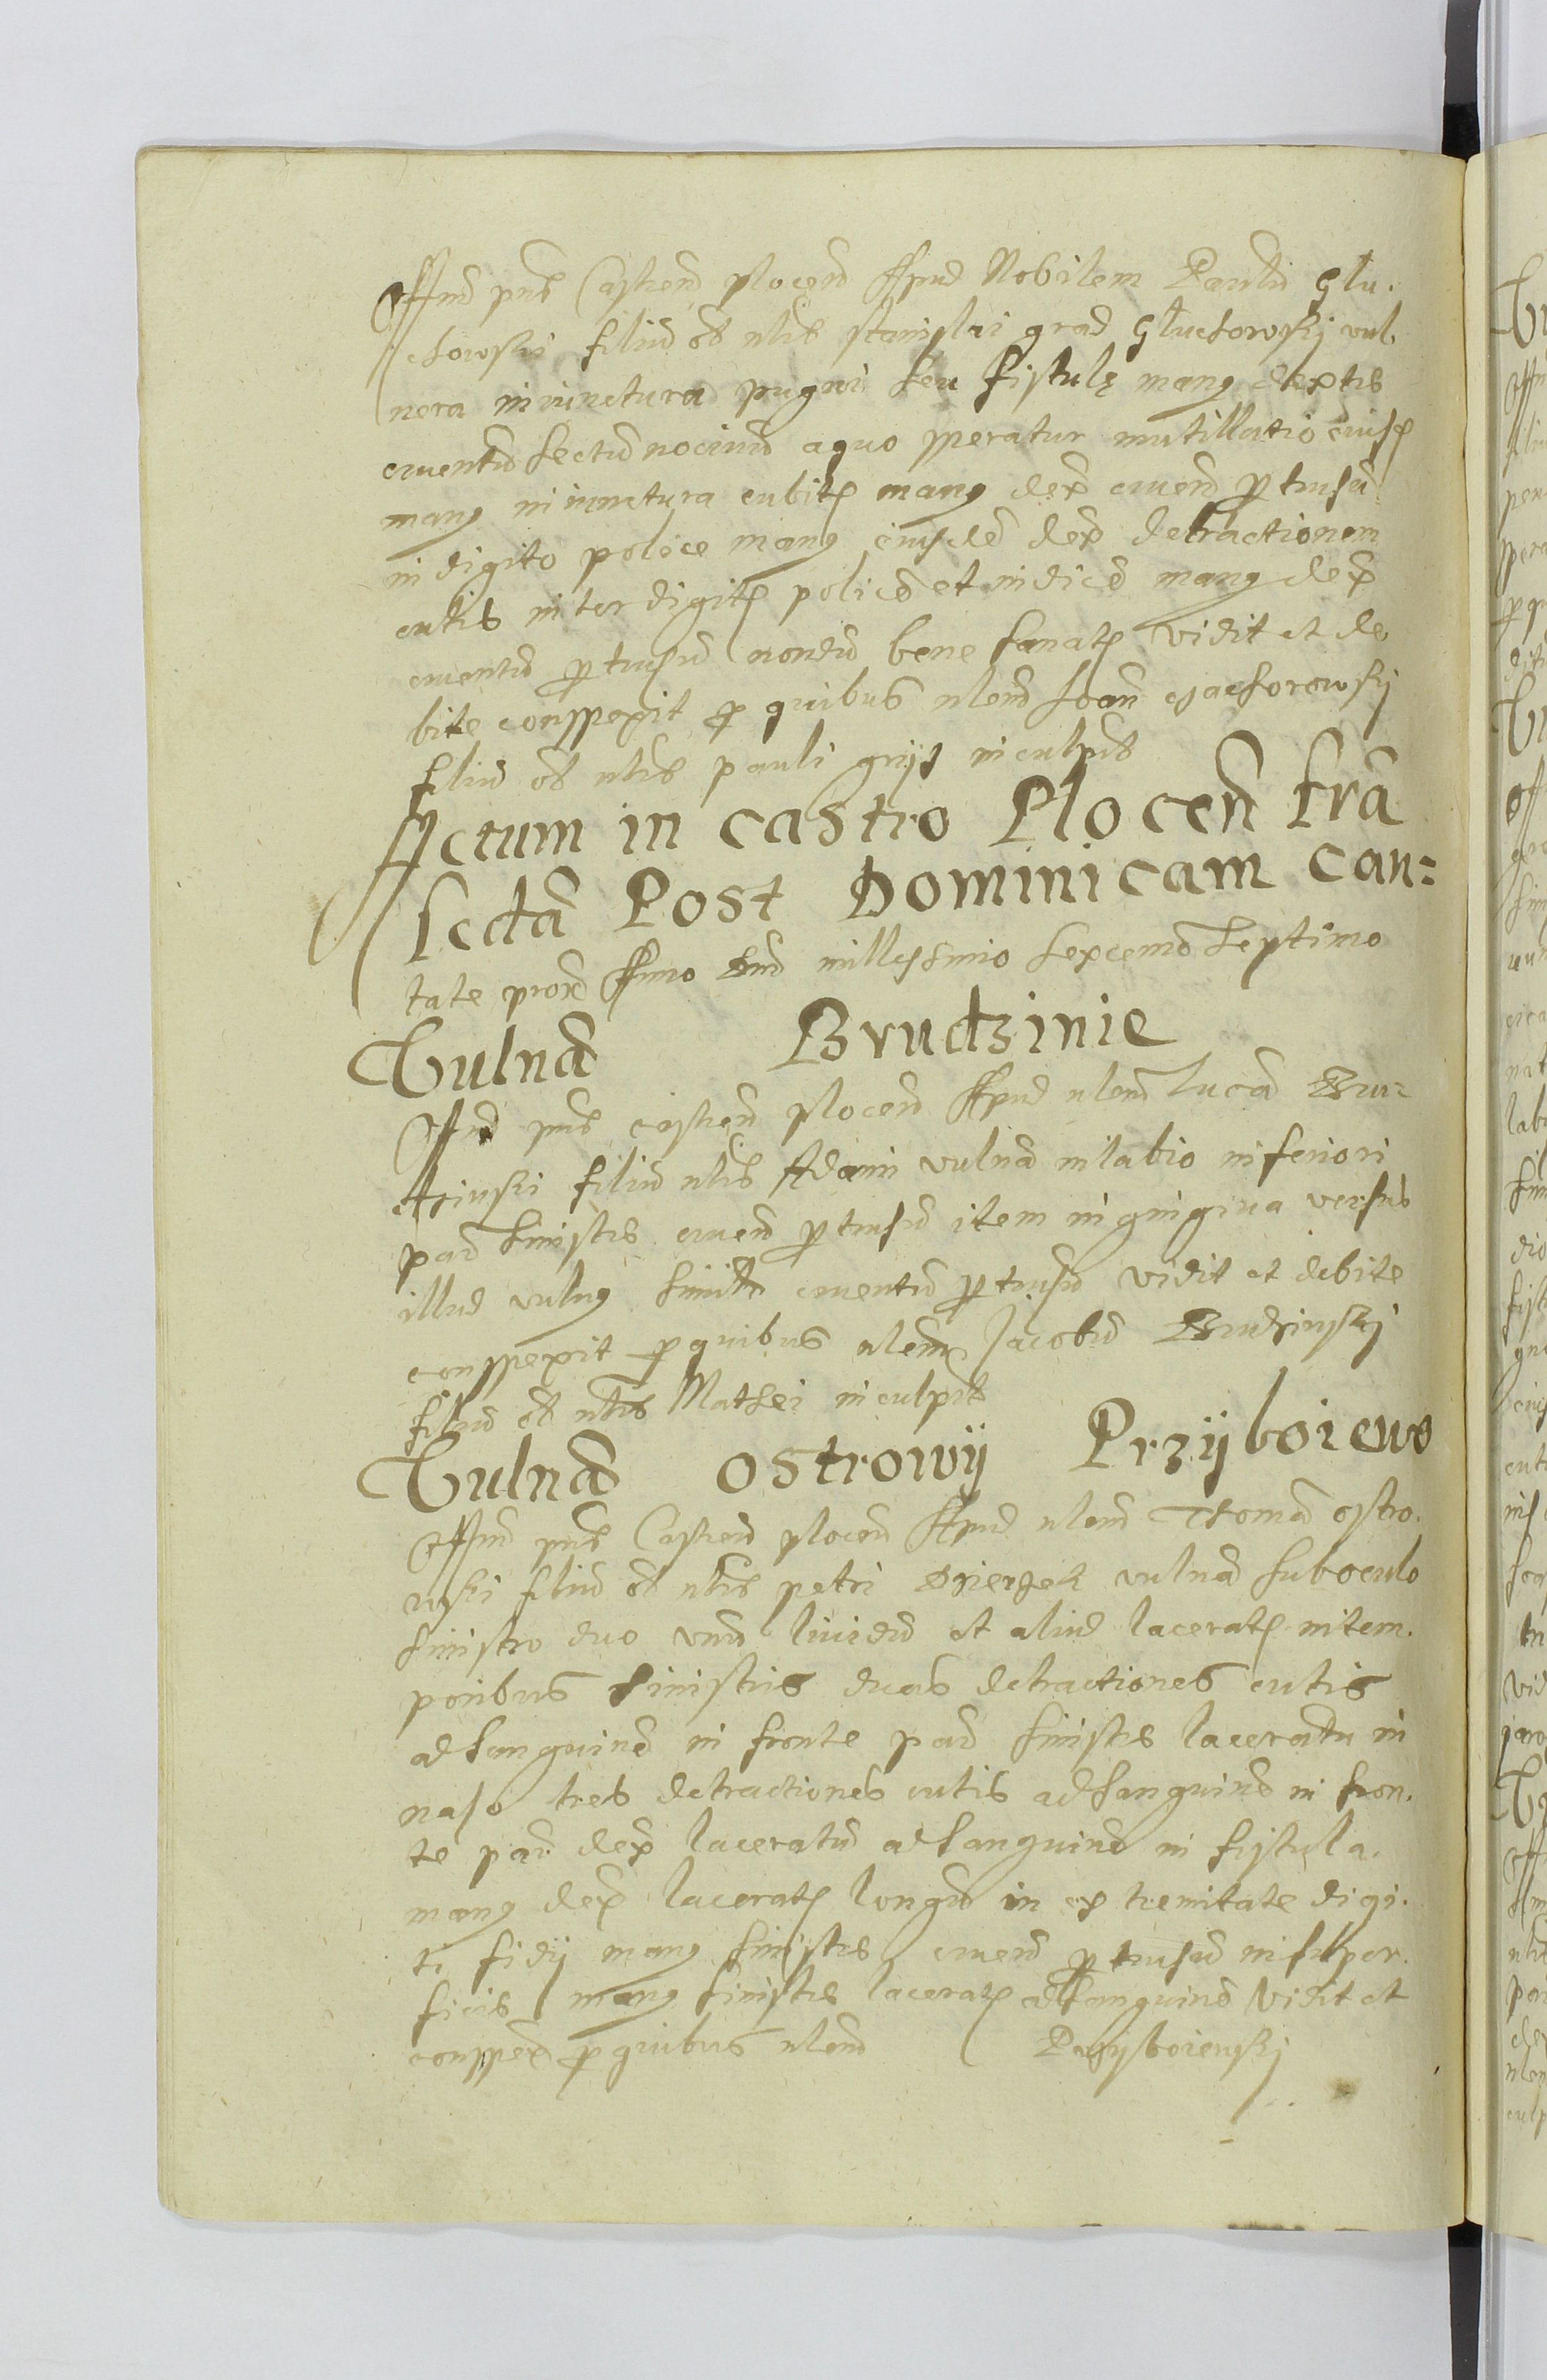 Offiu pns Castren plocen Apud Nobilem Paulu Głu.
chowski filiu ol nlis stanislai grad Głuchowskj vul.
nera in iunctura pugni seu fistulę manq dextris
cruentu sectu nociuu a quo speratur mutillatio eius
manq in iunctura cubit manq dex cruen ptusu
in digito police manq eiusde dex detractionem
cutis inter digit police et indice manq dex
cruentu ptusu nondu bene sanat vidit et de
bite conspexit p quibus nlem Ioan
filiu ol nlis pauli inculpat
Actum in castro Plocen fria
sexta Post Dominicam Can=
tate prox Anno Dni millessimo sexcemo septimo
Vulna Brudzinie
Offiu pns castren plocen Apud nlem Luca Bru=
dzinski filiu nlis Adami vulna in labio inferiori
par sinistris cruen ptusu item in gingiua versus
illud vulnq simile cruentu ptusu vidit et debite
conspexit p quibus nlem Jacobu Brudzinskj
filiu ol nlis Mathei inculpat
Vulna ostrowÿ Przÿboiewo
Offiu pns Castren plocen Apud nlem Thoma ostro.
wski filiu ol nlis petri vulna sub oculo
sinistro duo vnu liuidu et aliud lacerat in tem.
poribus sinistris duas detractiones cutis
ad sanguine in fronte par sinistris laceratu in
naso tres detractiones cutis ad sanguine in fron.
te par dex laceratu ad sanguine in fistula.
manq dex lacerat longu in extremitate digi.
ti fidÿ manq sinistris cruen ptusu in super.
ficis manq sinistris lacerat ad sanguine vidit et
conspex p quibus nlem Przÿboiewskj